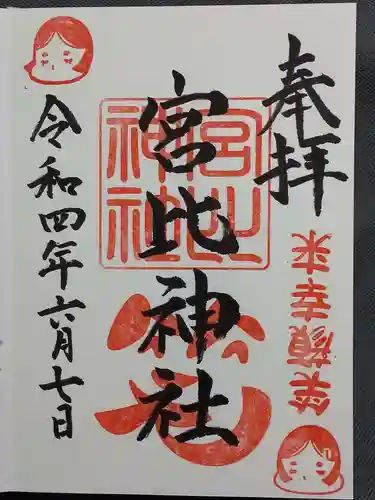 奉拝
笑顔幸来
宮比神社
宮比神社
令和四年六月七日